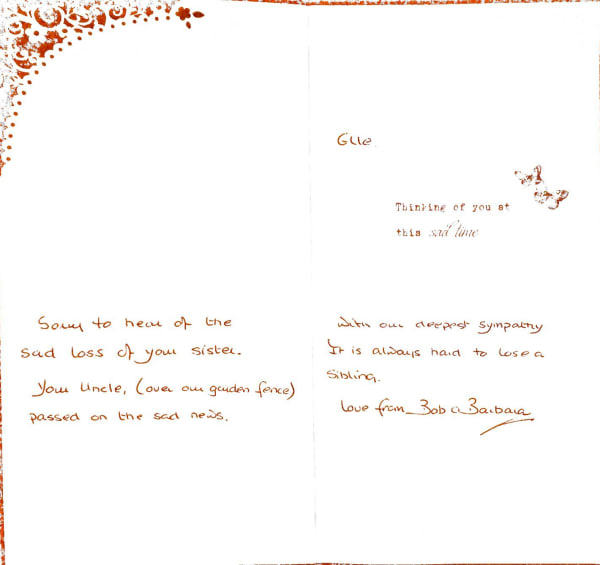 Sorry to hear of the
sad loss of your sister.
Your Uncle, (over our garden fence)
passed on the sad news.
Elle
Thinking of you at
this sad time
With our deepest sympathy
It is always hard to lose a
sibling.
Love from Bob & Barbara